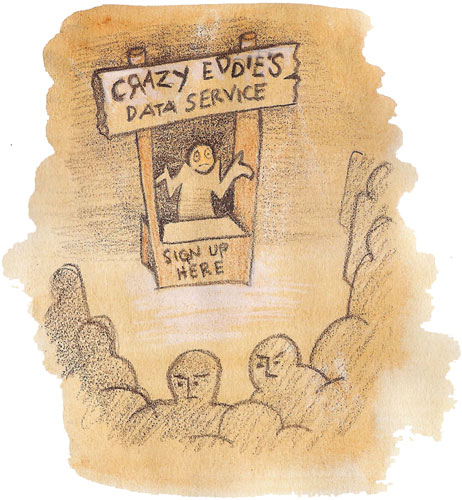 CRAZY EDDIE'S
DATA SERVICE
SIGN UP
HERE